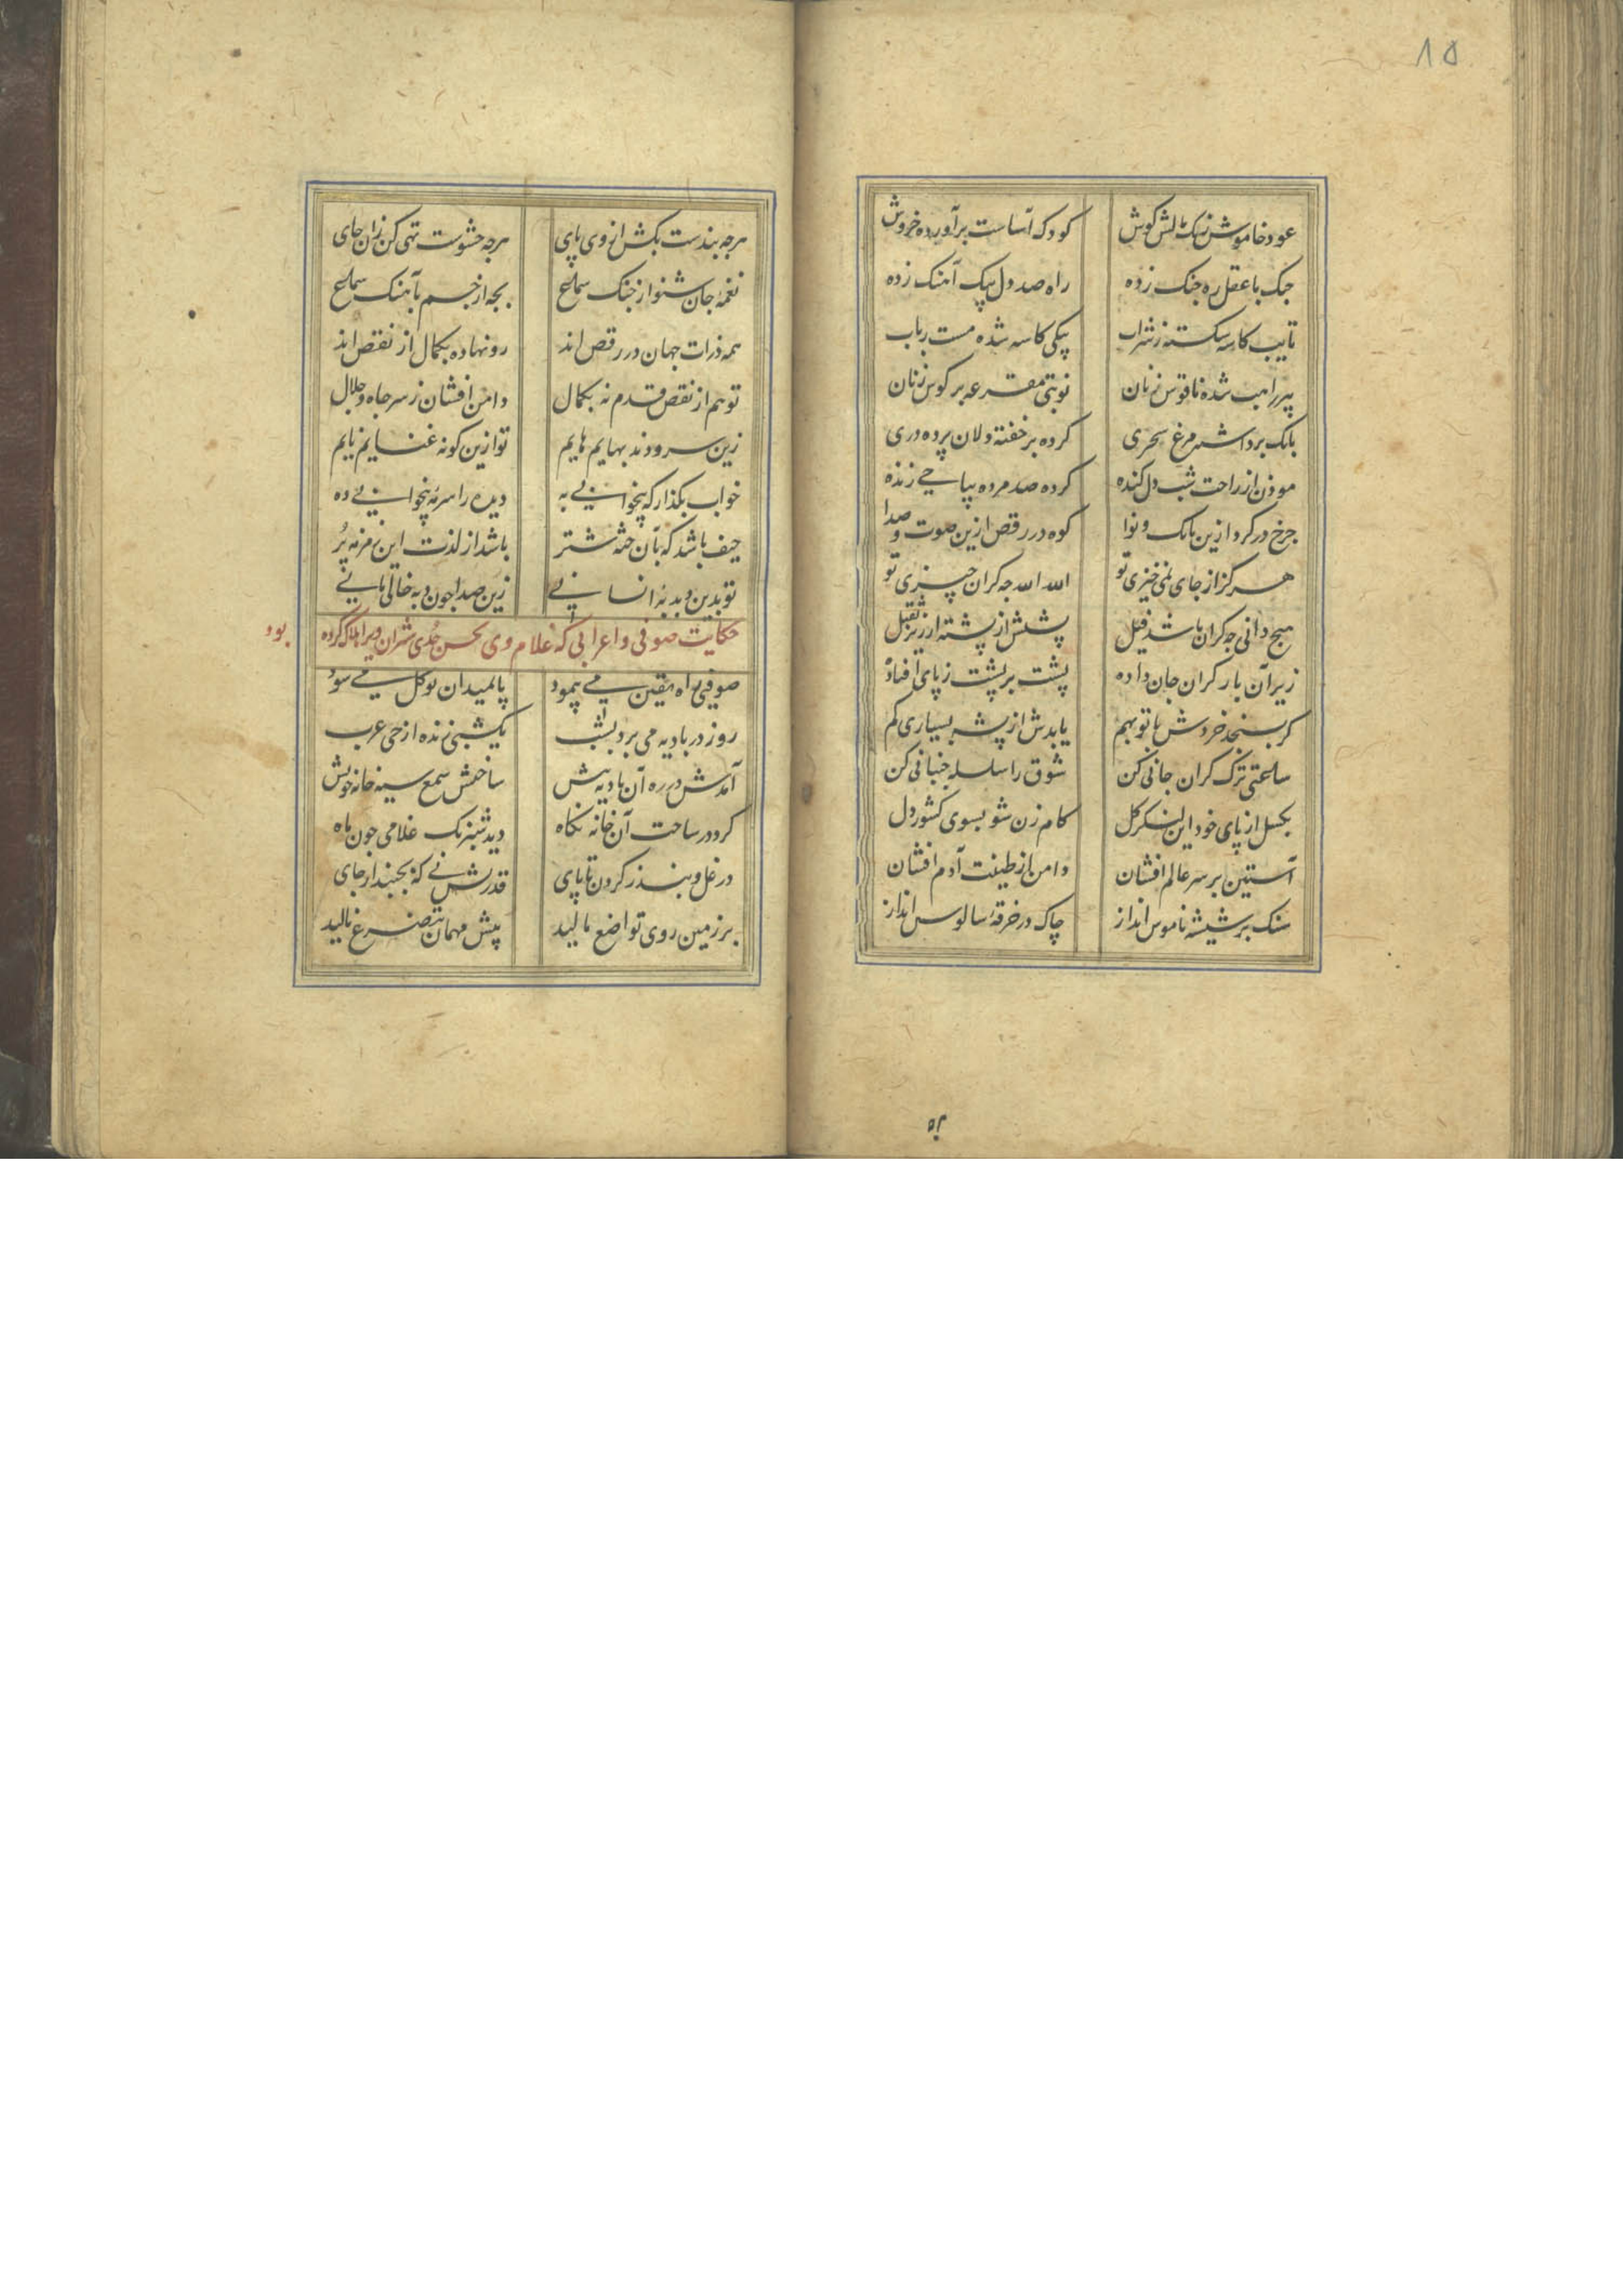 ۸۵
عود خاموش زیک مالش گوش کودک آساست برآورده خروش
چنک با عقل ره جنک زده راه صد دل بیک آهنک زده
تایب کاسه شکسته ز شراب بیکی کاسه شده مست رباب
پیر راهب شده ناقوس زنان نوبتی مقرعه بر کوس زنان
بانک برداشته مرغ سحری کرده بر خفته دلان پرده دری
موذن از راحت شب دل کنده کرده صد مرده بیا حی زنده
چرخ در کرد ازین بانک و نوا کوه در رقص ازین صوت و صدا
هرکز از جای نمی خیزی تو الله الله چه کران چیزی تو
هیچ دانی چه کران باشد فیل پشتش از پشته ارزیز ثقیل
زیر آن بار کران جان داده پشت بر پشت ز پای افتاده
کر بسنجد خردش با تو بهم یابدش از پشه بسیاری کم
ساعتی ترک کران جانی کن شوق را سلسله جنبانی کن
بکسل از پای خود این لنکر کل کام زن شو بسوی کشور دل
آستین بر سر عالم افشان دامن از طینت آدم افشان
سنک بر شیشه ناموس انداز چاک در خرقه سالوس انداز
هرچه بندست بکش از وی پای هرچه حشوست تهی کن زان جای
نغمه جان شنو از چنک سماع بجه از جسم بآهنک سماع
همه ذرات جهان در رقص اند رو نهاده بکمال از نقص اند
تو هم از نقص قدم نه بکمال دامن افشان ز سر جاه و جلال
زین سرودند بهایم هایم تو ازین کونه غنایم نایم
خواب بکذار که بیخوابی به دیده را سرمه بیخوابی ده
حیف باشد که بآن جثه شتر باشد از لذت این زمزمه پر
تو بدین دبدبه انسانی زین صدا چون دبه خالی مانی
حکایت صوفی و اعرابی که غلام وی بحسن حدی شتران ویرا هلاک کرده بود
صوفیی راه یقین می پیمود پا بمیدان توکل می سود
روز در بادیه می برد بشب یکشبی زنده از حی عرب
آمدش در ره آن بادیه پیش ساختش شمع سیه خانه خویش
کرد در ساحت آن خانه نکاه دید شبرنک غلامی چون ماه
در غل و بند ز کردن تا پای قدرتش نی که بجنبد از جای
بر زمین روی تواضع مالید پیش مهمان بتضرع نالید